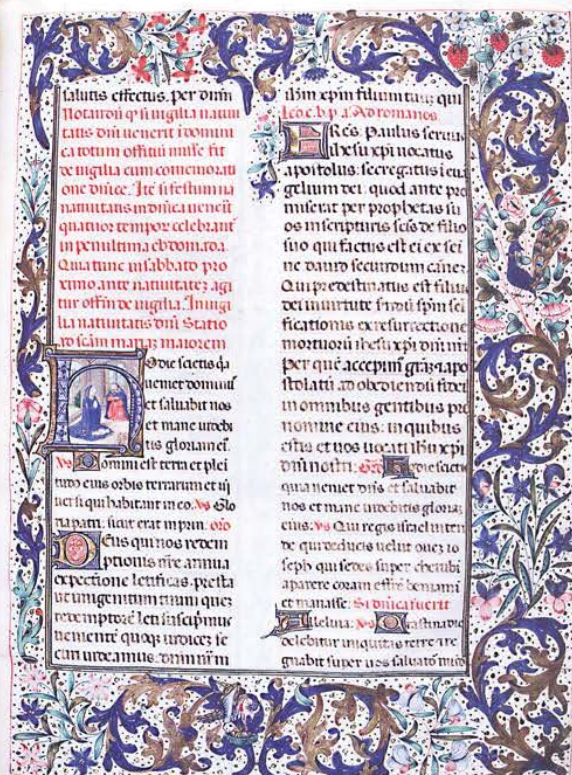 salutis effectus. per dnm
Notandū qꝫ si uigilia natiui
tatis dni uenerit i domini
ca totum offitiū misse fit
de uigilia cum comemorati
one dnice. Itē si festum na
natiuitatis in dnica uenerit
quatuor tempor celebrant
in penultima ebdomada.
Quia tunc in sabbato pro
ximo ante natiuitatez agi
tur offm de uigilia. In uigi
lia natiuitatis dni Statio
ad scām mariaz maiorem
Hodie scietis qa
ueniet dominus
et saluabit nos
et mane uideb
tis gloriam ei.
Vs Domini est terra et plei
tudo eius orbis terrarum et ui
uersi qui habitant in eo. Vs Glo
ria patri. sicut erat in prin. oro
Deus qui nos redem
ptionis nre annua
expectione letificas. presta
ut unigenitum tuum quez
redemptorē leti suscipimus
uenientē quoqꝫ iudicez se
curi uideamus. dnm nrm
ihm xpm filium tuuz qui
Leo. e. b. p. a. Ad romanos.
FRES. Paulus seruus
ihesu xpi uocatus
apostolus: secregatus i eua
gelium dei: quod ante pro
miserat per prophetas su
os in scripturis scis de filio
suo qui factus est ei ex sei
ne dauid secundum carnez
Qui predestinatus est filius
dei in uirtute sm spm sci
ficationis ex resurrectione
mortuorū ihesu xpi dni nri
per quē accepim graz ꝫ apo
stolatū ad obediendū fidei
in omnibus gentibus pro
nomine eius: in quibus
estis et uos uocati ihu xpi
dni nostri: Gr. Hodie scietis
quia ueniet dns et saluabit
nos et mane uidebitis gloriaz
eius: Vs Qui regis israel inten
de qui deducis uelut ouez io
seph qui sedes super cherubi
aparere coram effre beniami
et manasse: Si dnica fuerit
Alleluia: Vs Crastina die
delebitur iniquitas terre ꝛ re
gnabit super nos saluator mūdi